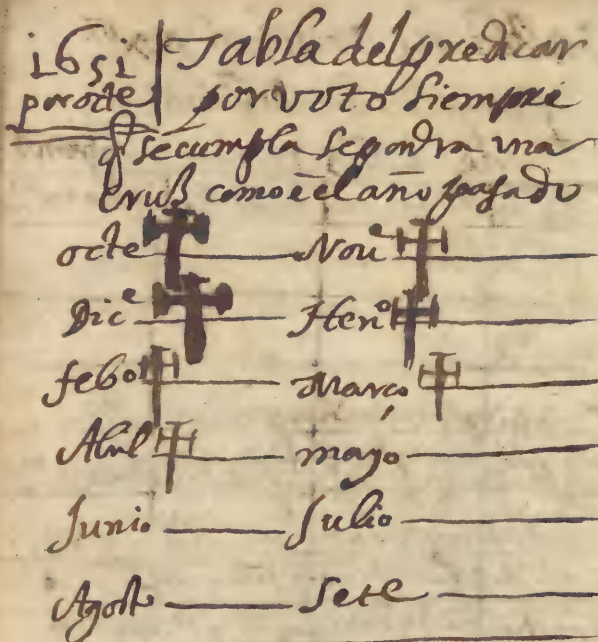 1651 Tabla del predicar
por octe por voto siempre
q̃ se cumpla se pondra una
cruß como ẽ el año pasado
octe Nou.e
Dic.e Hen.o
febo Março
Abril mayo
Junio Julio
Agost Sete